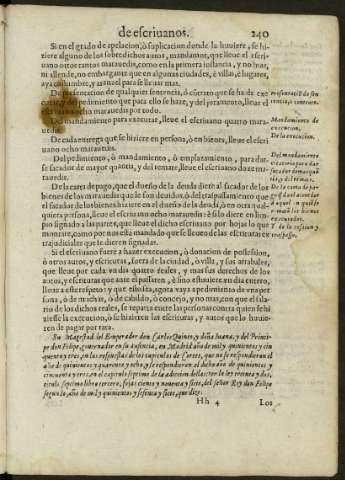 de escriuanos. 240
Si en el grado de apelacion, ò suplicacion donde la huuiere, se hi-
ziere alguno de los sobredichos autos, mandamos, que lleue el escri-
uano otros tantos marauedis, como en la primera instancia, y no mas,
ni allende, no embargante que en algunas ciudades, è villas, ò lugares,
aya costumbre, y arancel para se lleuar mas.
De presentacion de qualquier sentencia, ò contrato que se ha de exe
cutar, y del pedimento que para ello se haze, y del juramento, lleue el
escriuano ocho marauedis por todo.
Del mandamiento para executar, lleue el escriuano quatro mara-
uedis.
De cada entrega que se hiziere en persona, ò en bienes, lleue el escri
uano ocho marauedis.
Del pedimiento, ò mandamiento, ò emplazamiento, para dar
sacador de mayor quantia, y del remate, lleue el escriuano doze ma-
rauedis.
De la carta de pago, que el dueño de la deuda diere al sacador de los
bienes de los marauedis que le son deuidos, ò del traspassamiento que
el sacador de los bienes hiziere en el dueño de la deuda, ò en otra qual
quiera persona, lleue el escriuano ocho marauedis: è si lo diere en lim-
pio signado a las partes, que lleue el dicho escriuano por hojas lo que
monta, como por esta carta mandamos que se lleue de las escrituras ex
trajudiciales que se dieren signadas.
Si el escriuano fuere a hazer execucion, ò donacion de possession,
ò otros autos, y escrituras, fuera de la ciudad, ò villa, y sus arrabales,
que lleue por cada vn dia quatro reales, y mas sus derechos de los
autos, y escrituras que ante el passaren, è sino estuuiere vn dia entero,
lleue a este respeto: y que este sea, agora vaya a pedimento de vna per
sona, ò de muchas, ò de cabildo, ò concejo, y no mas, con que el sala-
rio de los dichos reales, se reparta entre las personas contra quien se hi
ziesse la execucion, ò se hizieren las escrituras, y autos que lo huuie-
ren de pagar por rata.
Su Magestad del Emperador don Carlos Quinto, y doña Iuana, y del Princi-
pe don Felipe, gouernador en su ausencia, en Madrid año de mil y quinientos y cin
cuenta y tres, en las respuestas de los capitulos de Cortes, que no se respondieron el
año de quinientos y quarenta y ocho, y se respondieron el dicho año de quinientos y
cincuenta y tres, en el capitulo septimo de la adicion
titulo septimo libro tercero, fojas ciento y nouenta y siete, del señor Rey don Felipe
segundo, año de mil y quinientos y sesenta y siete, que dize:
Hh 4 Los
Presentacion de sen
tencia, ò contrato.
Mandamiento de
execucion.
De la execucion.
Del mandamiento
para dar
sacador de mayor quã
tia, y del remate.
De la carta de pa-
go
y